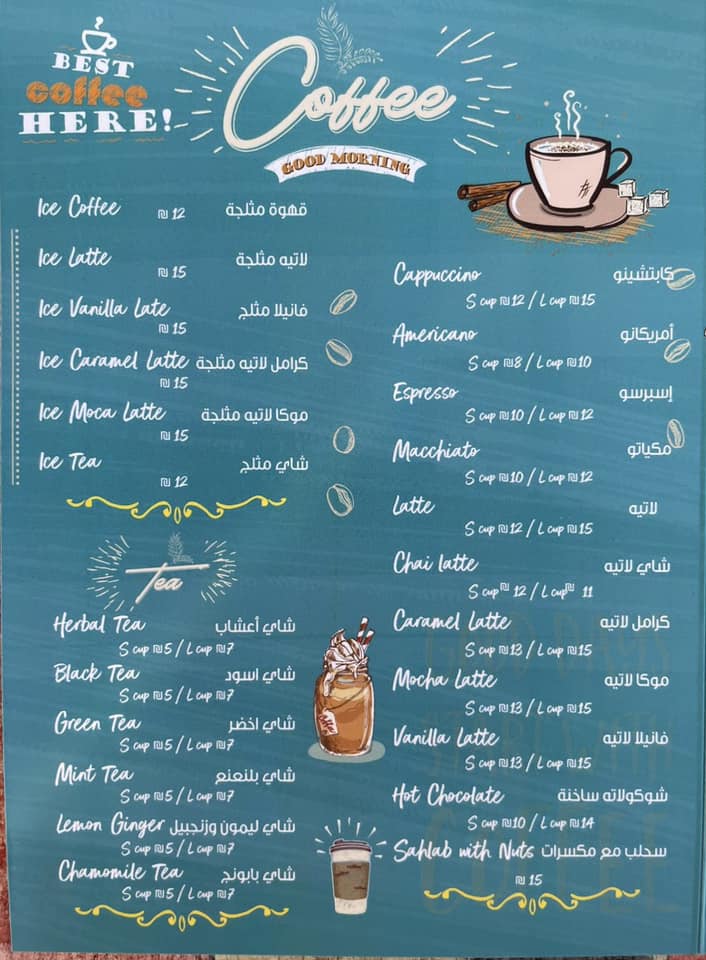 BEST
coffee
HERE!
Coffee
GOOD MORNING
Ice Coffee ₪ 12 قهوة مثلجة
Ice Latte لاتيه مثلجة
₪ 15
Ice Vanilla Late فانيلا مثلج
₪ 15
Ice Caramel Latte كرامل لاتيه مثلجة
₪ 15
Ice Moca Latte موكا لاتيه مثلجة
₪ 15
Ice Tea شاي مثلج
₪ 12
Tea
Herbal Tea شاي أعشاب
S cup ₪5 / L cup ₪7
Black Tea شاي اسود
S cup ₪5 / L cup ₪7
Green Tea شاي اخضر
S cup ₪5 / L cup ₪7
Mint Tea شاي بلنعنع
S cup ₪5 / L cup ₪7
Lemon Ginger شاي ليمون وزنجبيل
S cup ₪5 / L cup ₪7
Chamomile Tea شاي بابونج
S cup ₪5 / L cup ₪7
Cappuccino كابتشينو
S cup ₪12 / L cup ₪15
Americano أمريكانو
S cup ₪8 / L cup ₪10
Espresso إسبرسو
S cup ₪10 / L cup ₪12
Macchiato مكياتو
S cup ₪10 / L cup ₪12
Latte لاتيه
S cup ₪12 / L cup ₪15
Chai latte شاي لاتيه
S cup ₪ 12 / L cup ₪ 11
Caramel Latte كرامل لاتيه
S cup ₪13 / L cup ₪15
Mocha Latte موكا لاتيه
S cup ₪13 / L cup ₪15
Vanilla Latte فانيلا لاتيه
S cup ₪13 / L cup ₪15
Hot Chocolate شوكولاته ساخنة
S cup ₪10 / L cup ₪14
Sahlab with Nuts سحلب مع مكسرات
₪ 15
GOOD DAYS
START WITH
COFFEE